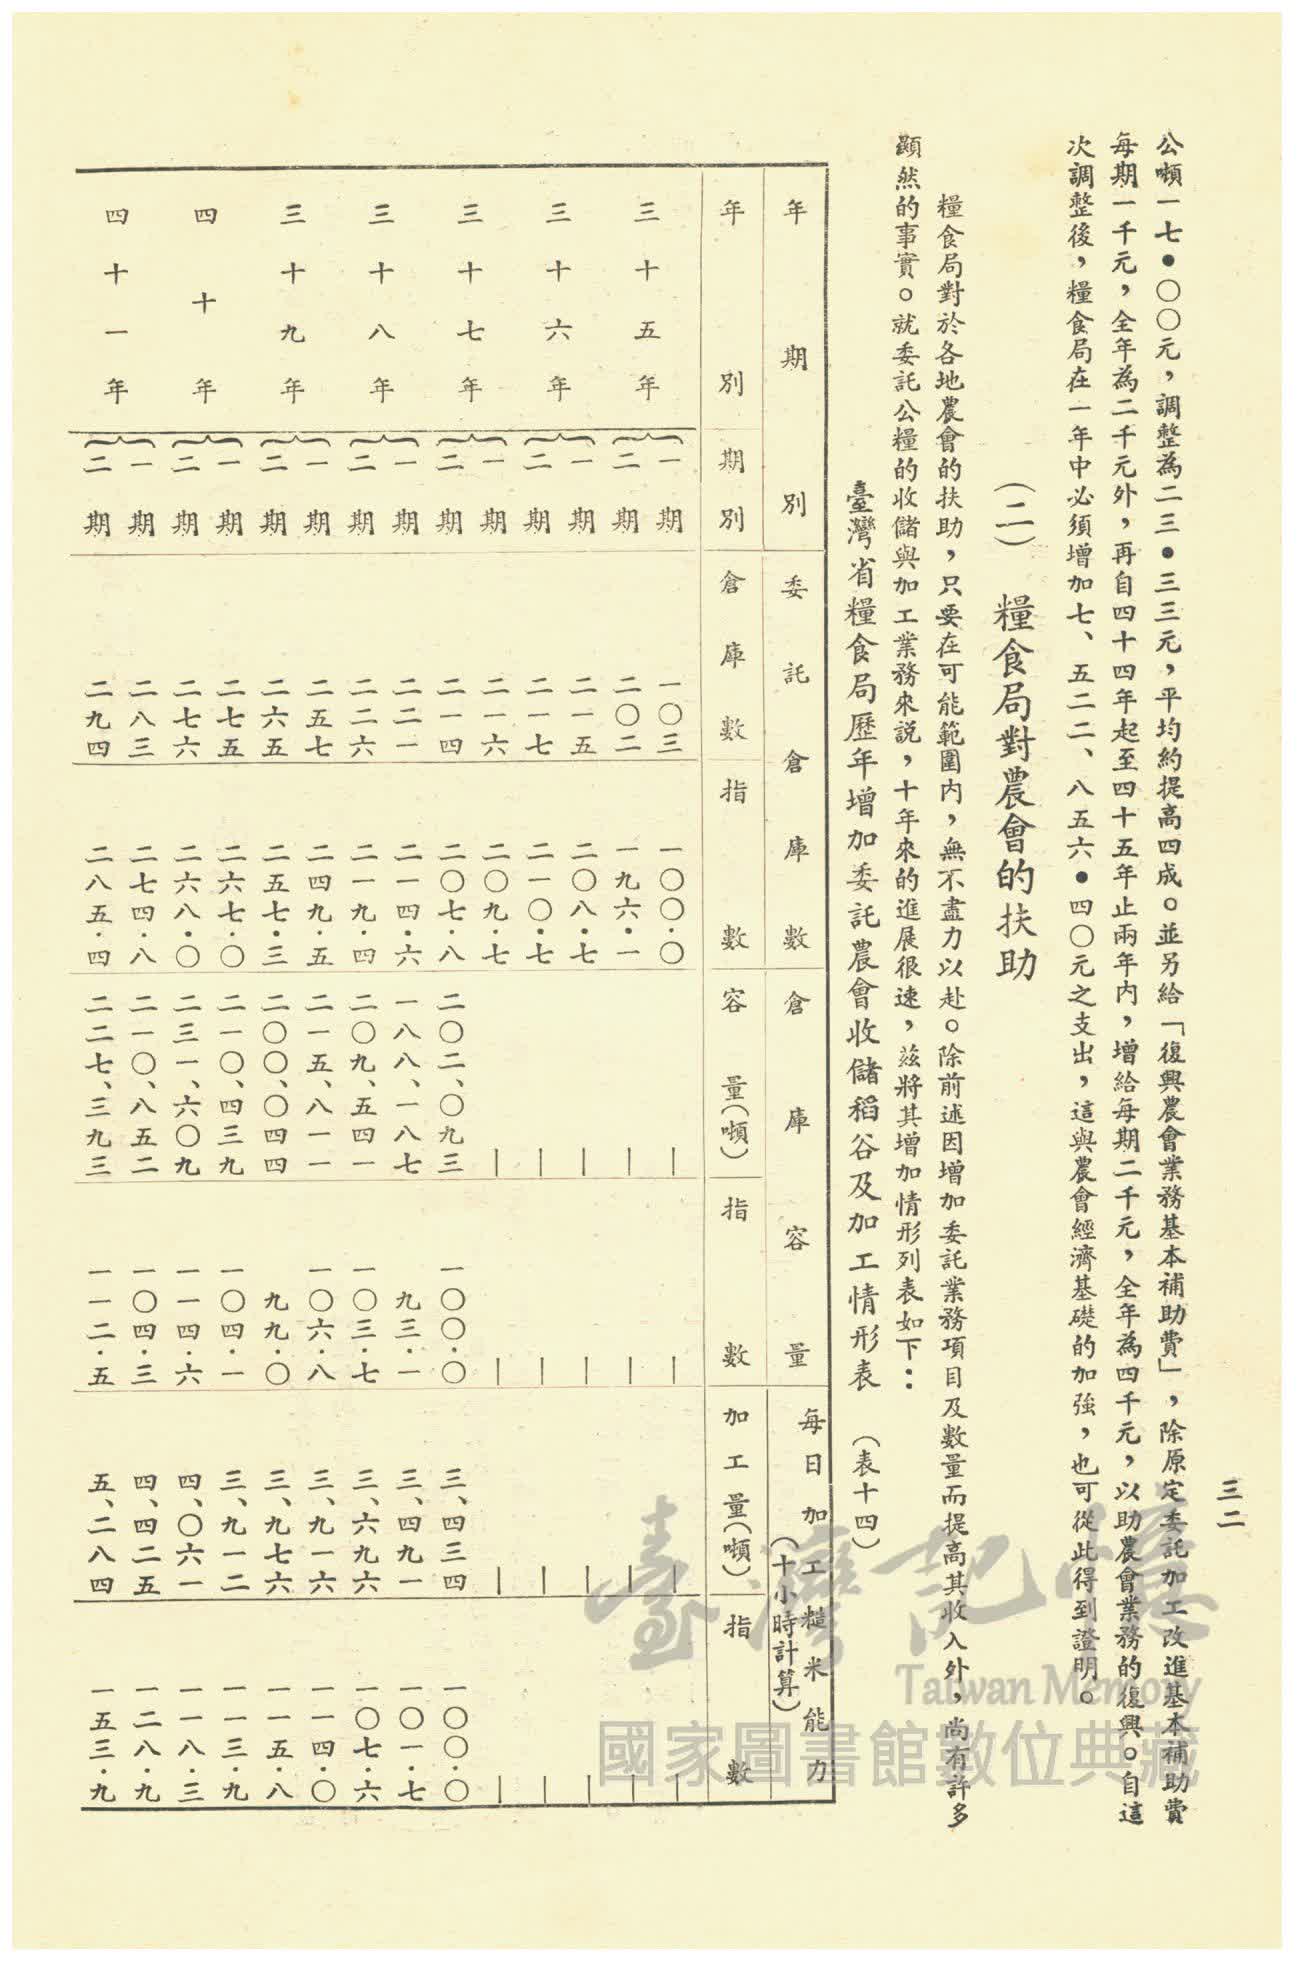 三二
公噸一七•〇〇元，調整為二三•三三元，平均約提高四成。並另給「復興農會業務基本補助費」，除原定委託加工改進基本補助費
每期一千元，全年為二千元外，再自四十四年起至四十五年止兩年內，增給每期二千元，全年為四千元，以助農會業務的復興。自這
次調整後，糧食局在一年中必須增加七、五二二、八五六•四〇元之支出，這與農會經濟基礎的加強，也可從此得到證明。
（二）　糧食局對農會的扶助
糧食局對於各地農會的扶助，只要在可能範圍內，無不盡力以赴。除前述因增加委託業務項目及數量而提高其收入外，尚有許多
顯然的事實。就委託公糧的收儲與加工業務來說，十年來的進展很速，茲將其增加情形列表如下：
臺灣省糧食局歷年增加委託農會收儲稻谷及加工情形表　（表十四）
年期別　委託倉庫數　倉庫容量　每日加工糙米能力（十小時計算）
年別　期別　倉庫數　指數　容量（噸）　指數　加工量（噸）　指數
三十五年　一期　一〇三　一〇〇・〇　｜　｜　｜　｜
二期　二〇二　一九六・一　｜　｜　｜　｜
三十六年　一期　二一五　二〇八・七　｜　｜　｜　｜
二期　二一七　二一〇・七　｜　｜　｜　｜
三十七年　一期　二一六　二〇九・七　｜　｜　｜　｜
二期　二一四　二〇七・八　二〇二、〇九三　一〇〇・〇　三、四三四　一〇〇・〇
三十八年　一期　二二一　二一四・六　一八八、一八七　九三・一　三、四九一　一〇一・七
二期　二二六　二一九・四　二〇九、五四一　一〇三・七　三、六九六　一〇七・六
三十九年　一期　二五七　二四九・五　二一五、八一一　一〇六・八　三、九一六　一一四・〇
二期　二六五　二五七・三　二〇〇、〇四四　九九・〇　三、九七六　一一五・八
四十年　一期　二七五　二六七・〇　二一〇、四三九　一〇四・一　三、九一二　一一三・九
二期　二七六　二六八・〇　二三一、六〇九　一一四・六　四、〇六一　一一八・三
四十一年　一期　二八三　二七四・八　二一〇、八五二　一〇四・三　四、四二五　一二八・九
二期　二九四　二八五・四　二二七、三九三　一一二・五　五、二八四　一五三・九
臺灣記憶
Taiwan Memory
國家圖書館數位典藏